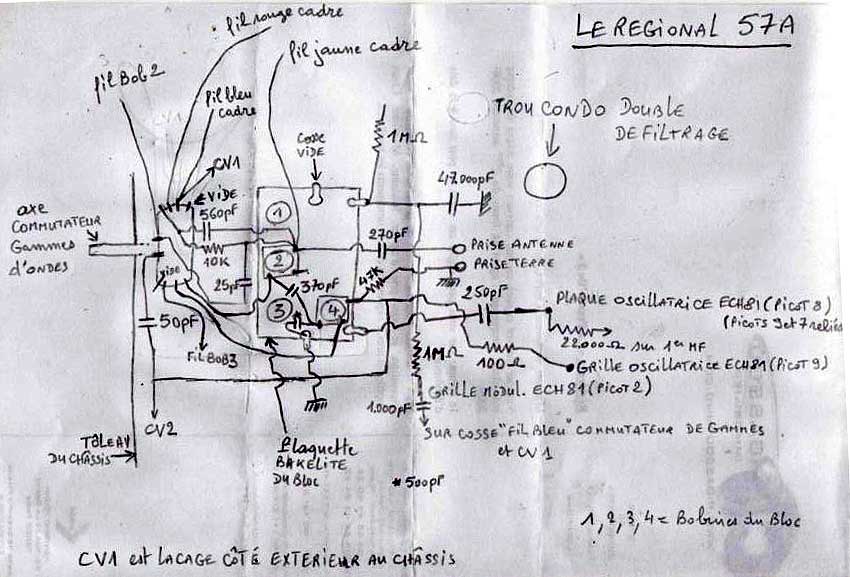 LE REGIONAL 57A
fil rouge cadre
fil jaune cadre
fil Bob 2
fil bleu
cadre
CV1
VIDE
COSSE
VIDE
1MΩ
TROU CONDO DOUBLE
DE FILTRAGE
47.000pF
axe
COMMUTATEUR
Gammes
d'ONDES
560pF
10K
25pF
VIDE
50pF
1
2
3
4
370pF
47K
270pF
PRISE ANTENNE
PRISE TERRE
250pF
PLAQUE OSCILLATRICE ECH81 (PICOT 8)
(PICOTS 9 et 7 reliés)
22.000Ω sur 1er MF
100Ω
GRILLE OSCILLATRICE ECH81 (PICOT 9)
1MΩ
GRILLE MODUL. ECH81 (PICOT 2)
1.000pF
SUR COSSE "FIL BLEU" COMMUTATEUR DE GAMMES
et CV1
FIL BOB3
CV2
TABLEAU
DU CHÂSSIS
Plaquette
BAKELITE
DU BLOC
* 500pF
1, 2, 3, 4 = Bobines du Bloc
CV1 est LA CAGE CÔTÉ EXTERIEUR AU CHÂSSIS